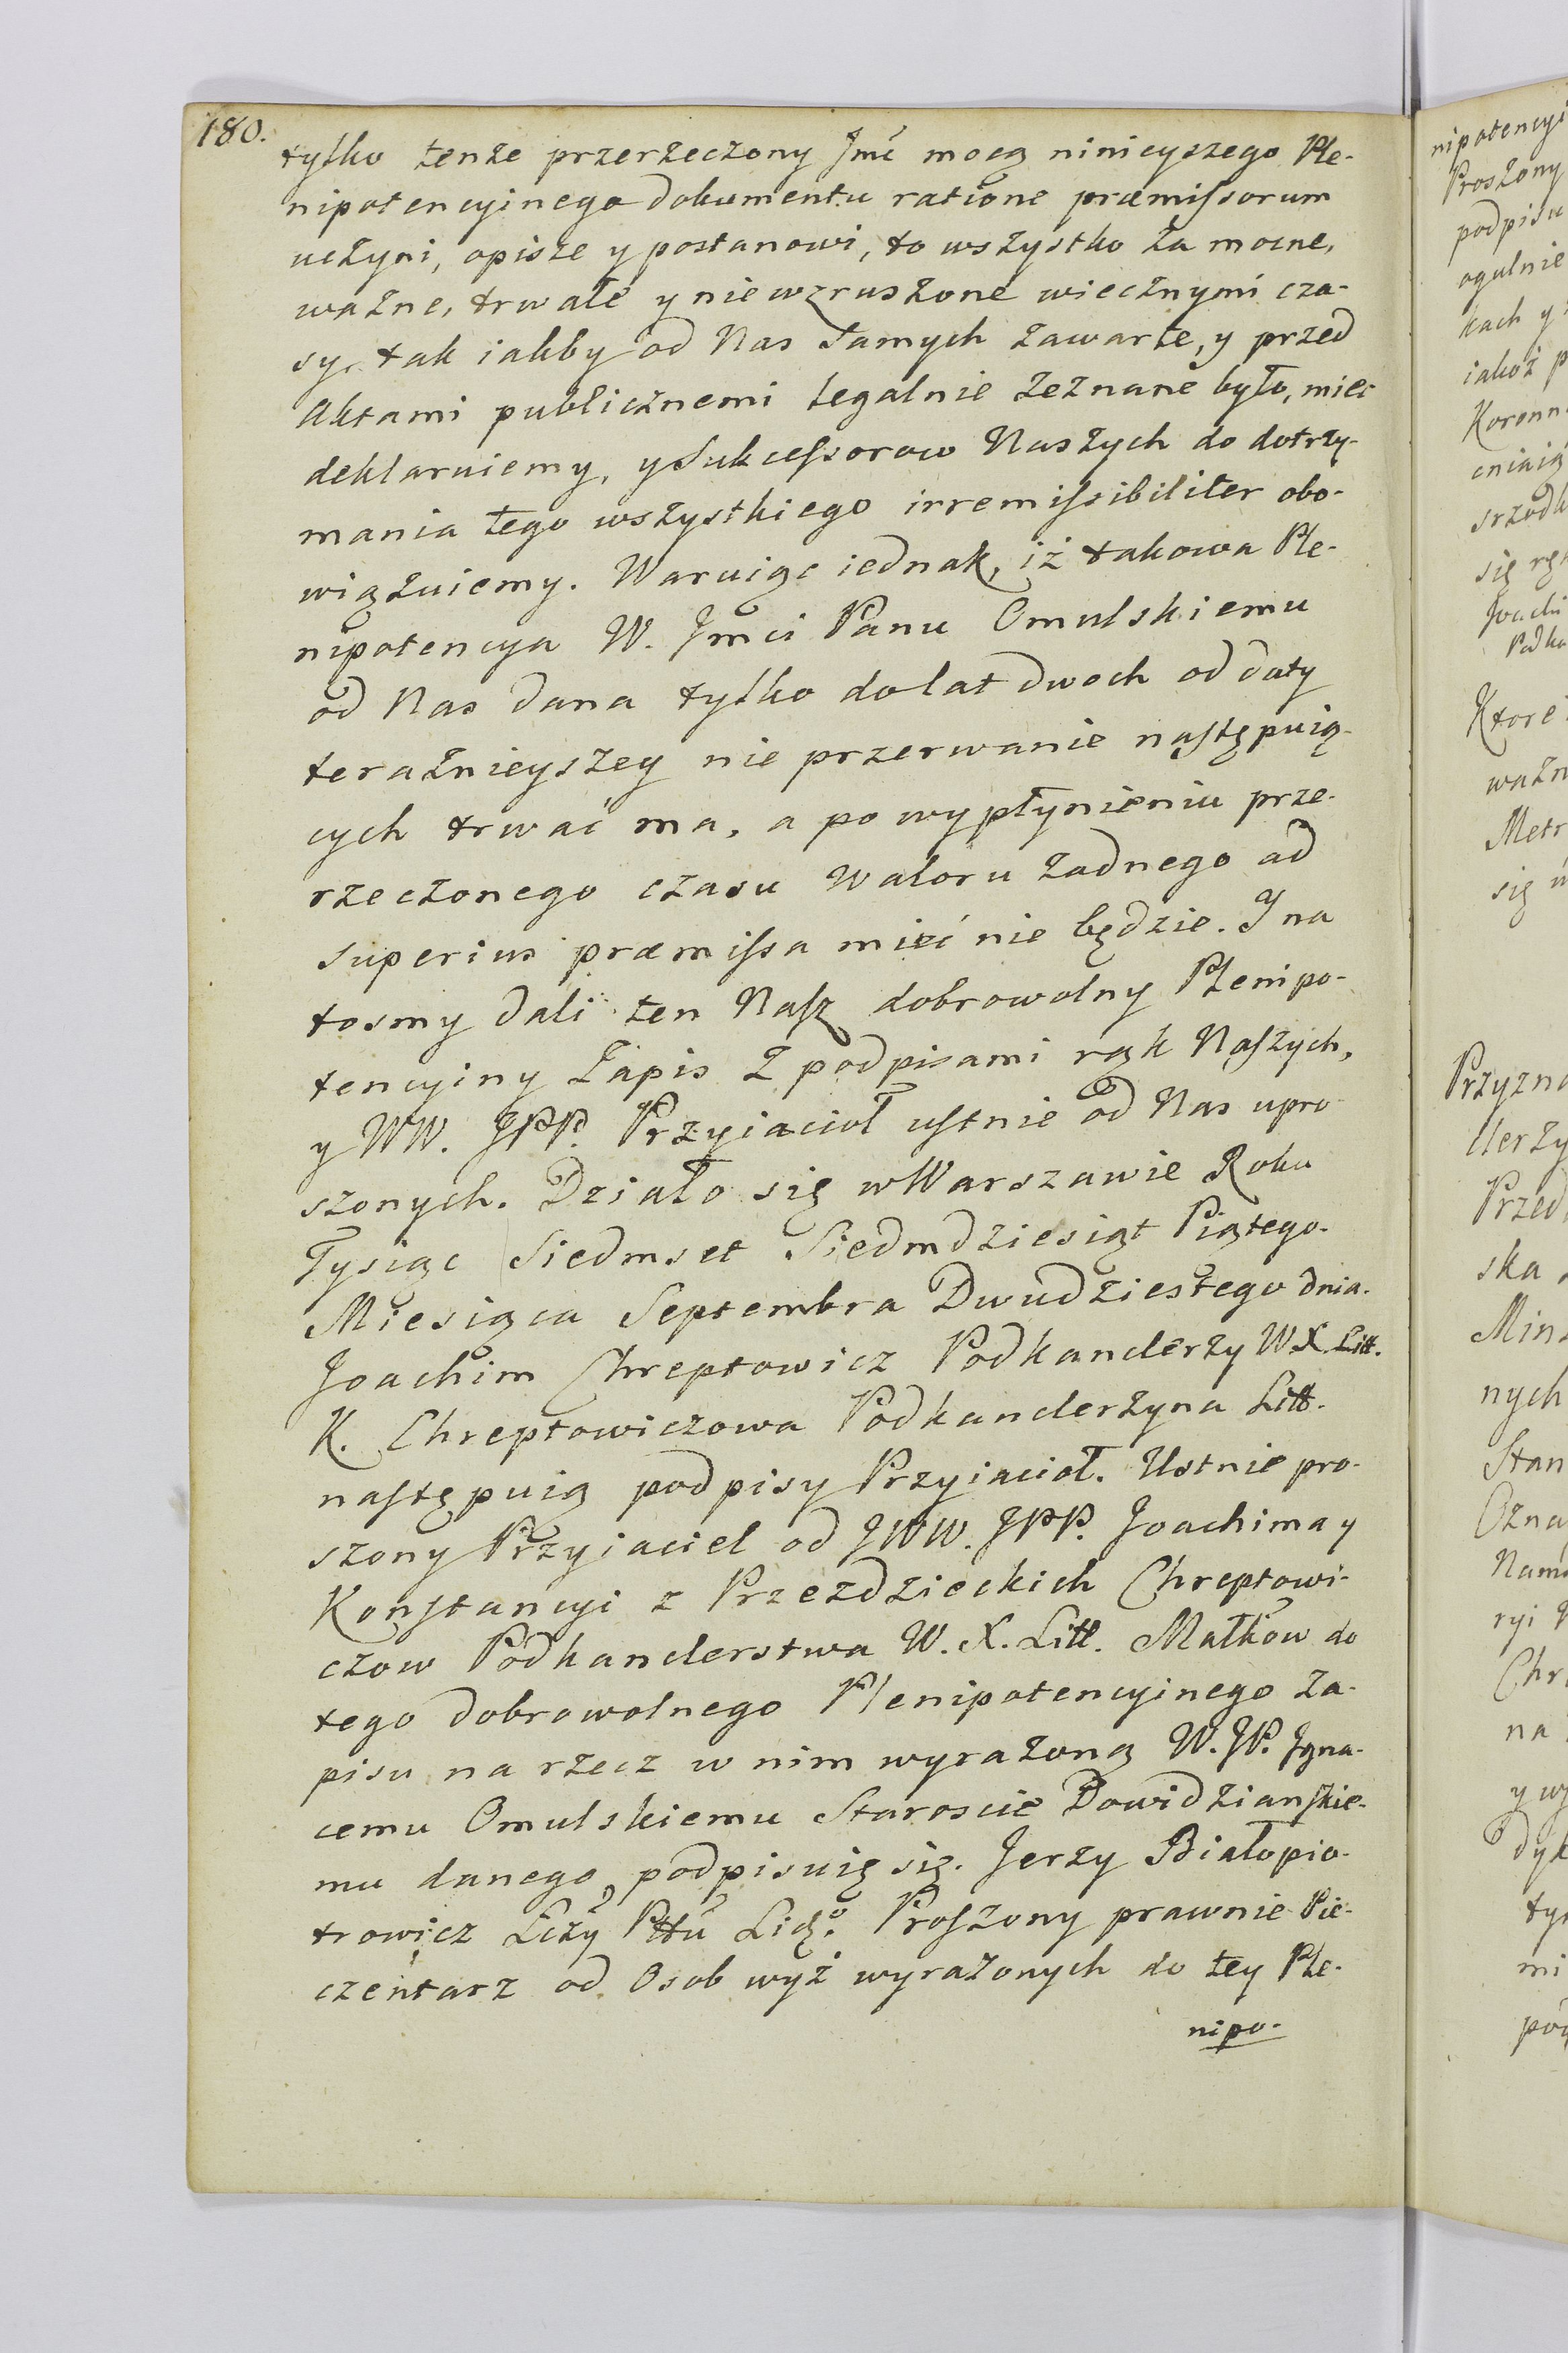 180.
tylko tenże przerzeczony Jmć mocą ninieyszego Ple-
nipotencyinego dokumentu ratione præmissorum
uczyni, opisze y postanowi, to wszystko za mocne,
ważne, trwałe y niewzruszone wiecznymi cza-
sy, tak iakby od Nas samych zawarte, y przed
Aktami publicznemi legalnie zeznane było, mieć
deklaruiemy, y Sukcessorow Naszych do dotrzy-
mania tego wszystkiego irremissibiliter obo-
wiązuiemy. Waruiąc iednak, iż takowa Ple-
nipotencya W. Jmci Panu Omulskiemu
od Nas dana tylko do lat dwoch od daty
teraźnieyszey nie przerwanie następuią-
cych trwać ma, a po wypłynieniu prze-
rzeczonego czasu Waloru żadnego ad
superius præmissa mieć nie będzie. I na
tosmy dali ten Nasz dobrowolny Plenipo-
tencyiny Zapis z podpisami rąk Naszych,
y WW. JPP. Przyiacioł ustnie od Nas upro
szonych. Działo się w Warszawie Roku
Tysiąc Siedmset Siedmdziesiąt Piątego.
Miesiąca Septembra Dwudziestego dnia.
Joachim Chreptowicz Podkanclerzy W.X. Litt.
K. Chreptowiczowa Podkanclerzyna Litt.
następuią podpisy Przyiacioł. Ustnie pro-
szony Przyiaciel od JWW. JPP. Joachima y
Konstancyi z Przezdzieckich Chreptowi-
czow Podkanclerstwa W. X. Litt. Małkow do
tego dobrowolnego Plenipotencyinego Za-
pisu na rzecz w nim wyrażoną W. JP. Igna-
cemu Omulskiemu Staroscie Dowidzianskie-
mu danego podpisuię się. Jerzy Białopio-
trowicz Proszony prawnie Pie-
czentarz od Osob wyż wyrażonych do tey Ple-
nipo-
nipotencyi
Proszony
podpisu
ogulnie
kach y
iakoż p
Koronn
cniaią
srzodk
się rę
Joachi
Podka
Ktore
ważn
Metr
się
Przyzna
clerzy
Przed
ska
Mins
nych
Stan
Ozna
Nam
ryi
Chr
na
y wy
dyk
ty
mi